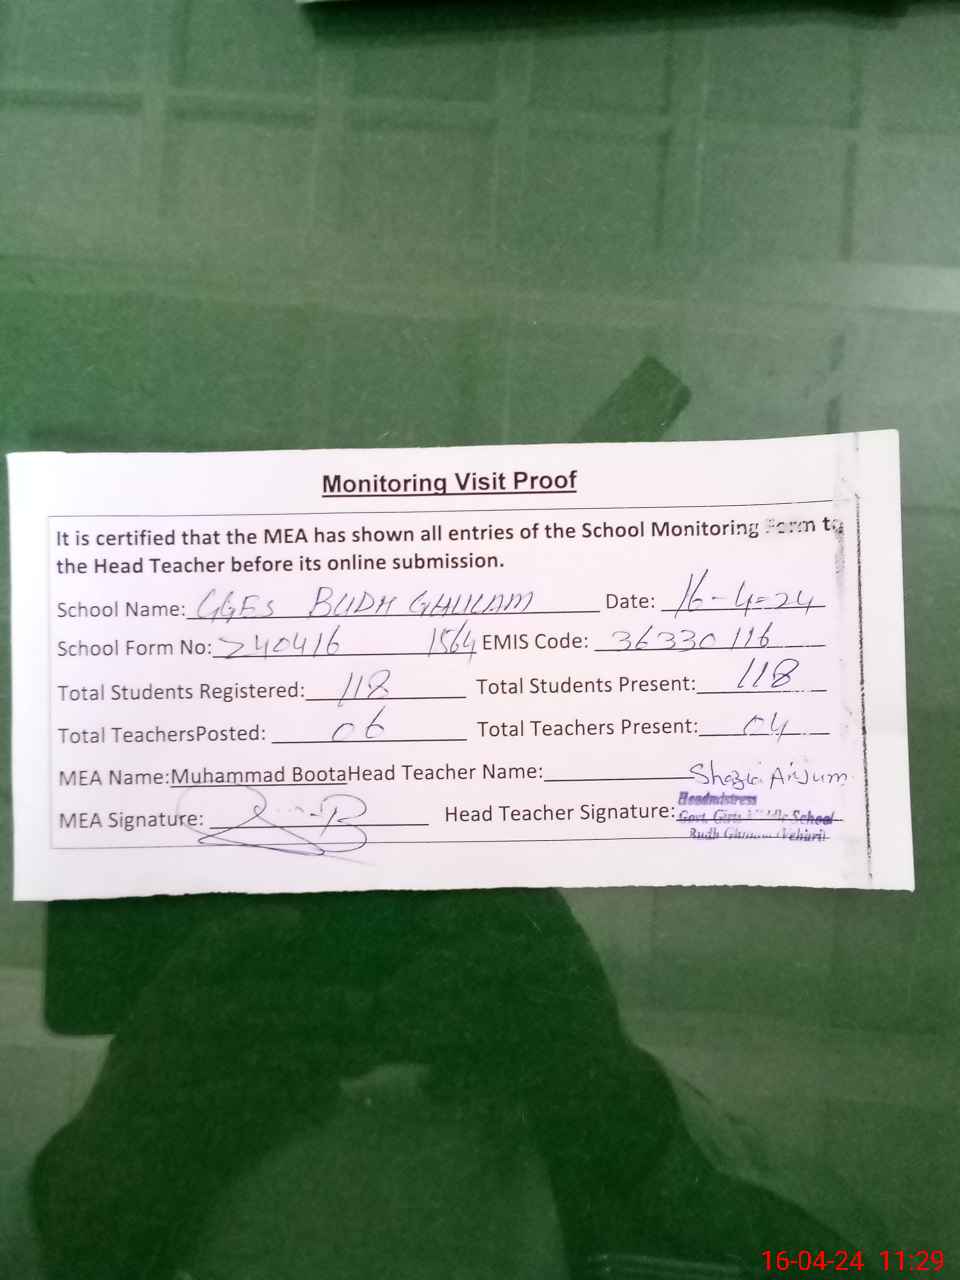 Monitoring Visit Proof
It is certified that the MEA has shown all entries of the School Monitoring Form to
the Head Teacher before its online submission.
School Name: GGES BUDH GHULAM Date: 16-4-24
School Form No: 240416 1564 EMIS Code: 36330116
Total Students Registered: 118 Total Students Present: 118
Total TeachersPosted: 06 Total Teachers Present: 04
MEA Name:Muhammad BootaHead Teacher Name: Shazia Anjum
MEA Signature: Head Teacher Signature:
Headmistress
Govt. Girls Middle School
Budh Ghulam (Vehari)
16-04-24 11:29